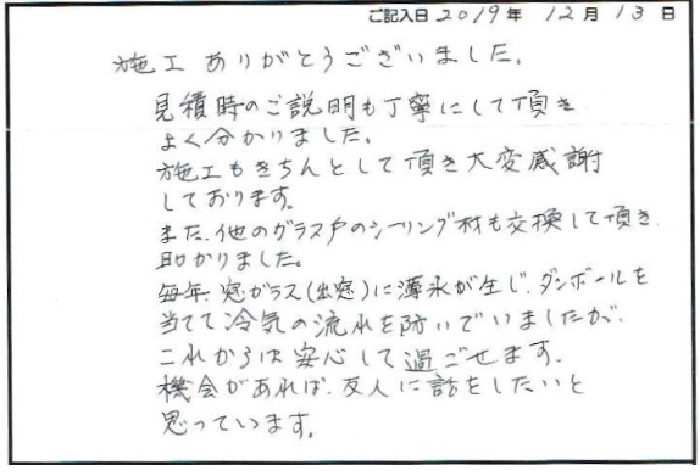 ご記入日 2019年 12月 13日
施工 ありがとうございました。
見積時のご説明も丁寧にして頂き
よく分かりました。
施工もきちんとして頂き大変感謝
しております。
また、他のガラス戸のシーリング材も交換して頂き
助かりました。
毎年、窓ガラス(出窓)に薄氷が生じ、ダンボールを
当てて冷気の流れを防いでいましたが、
これからは安心して過ごせます。
機会があれば、友人に話をしたいと
思っています。